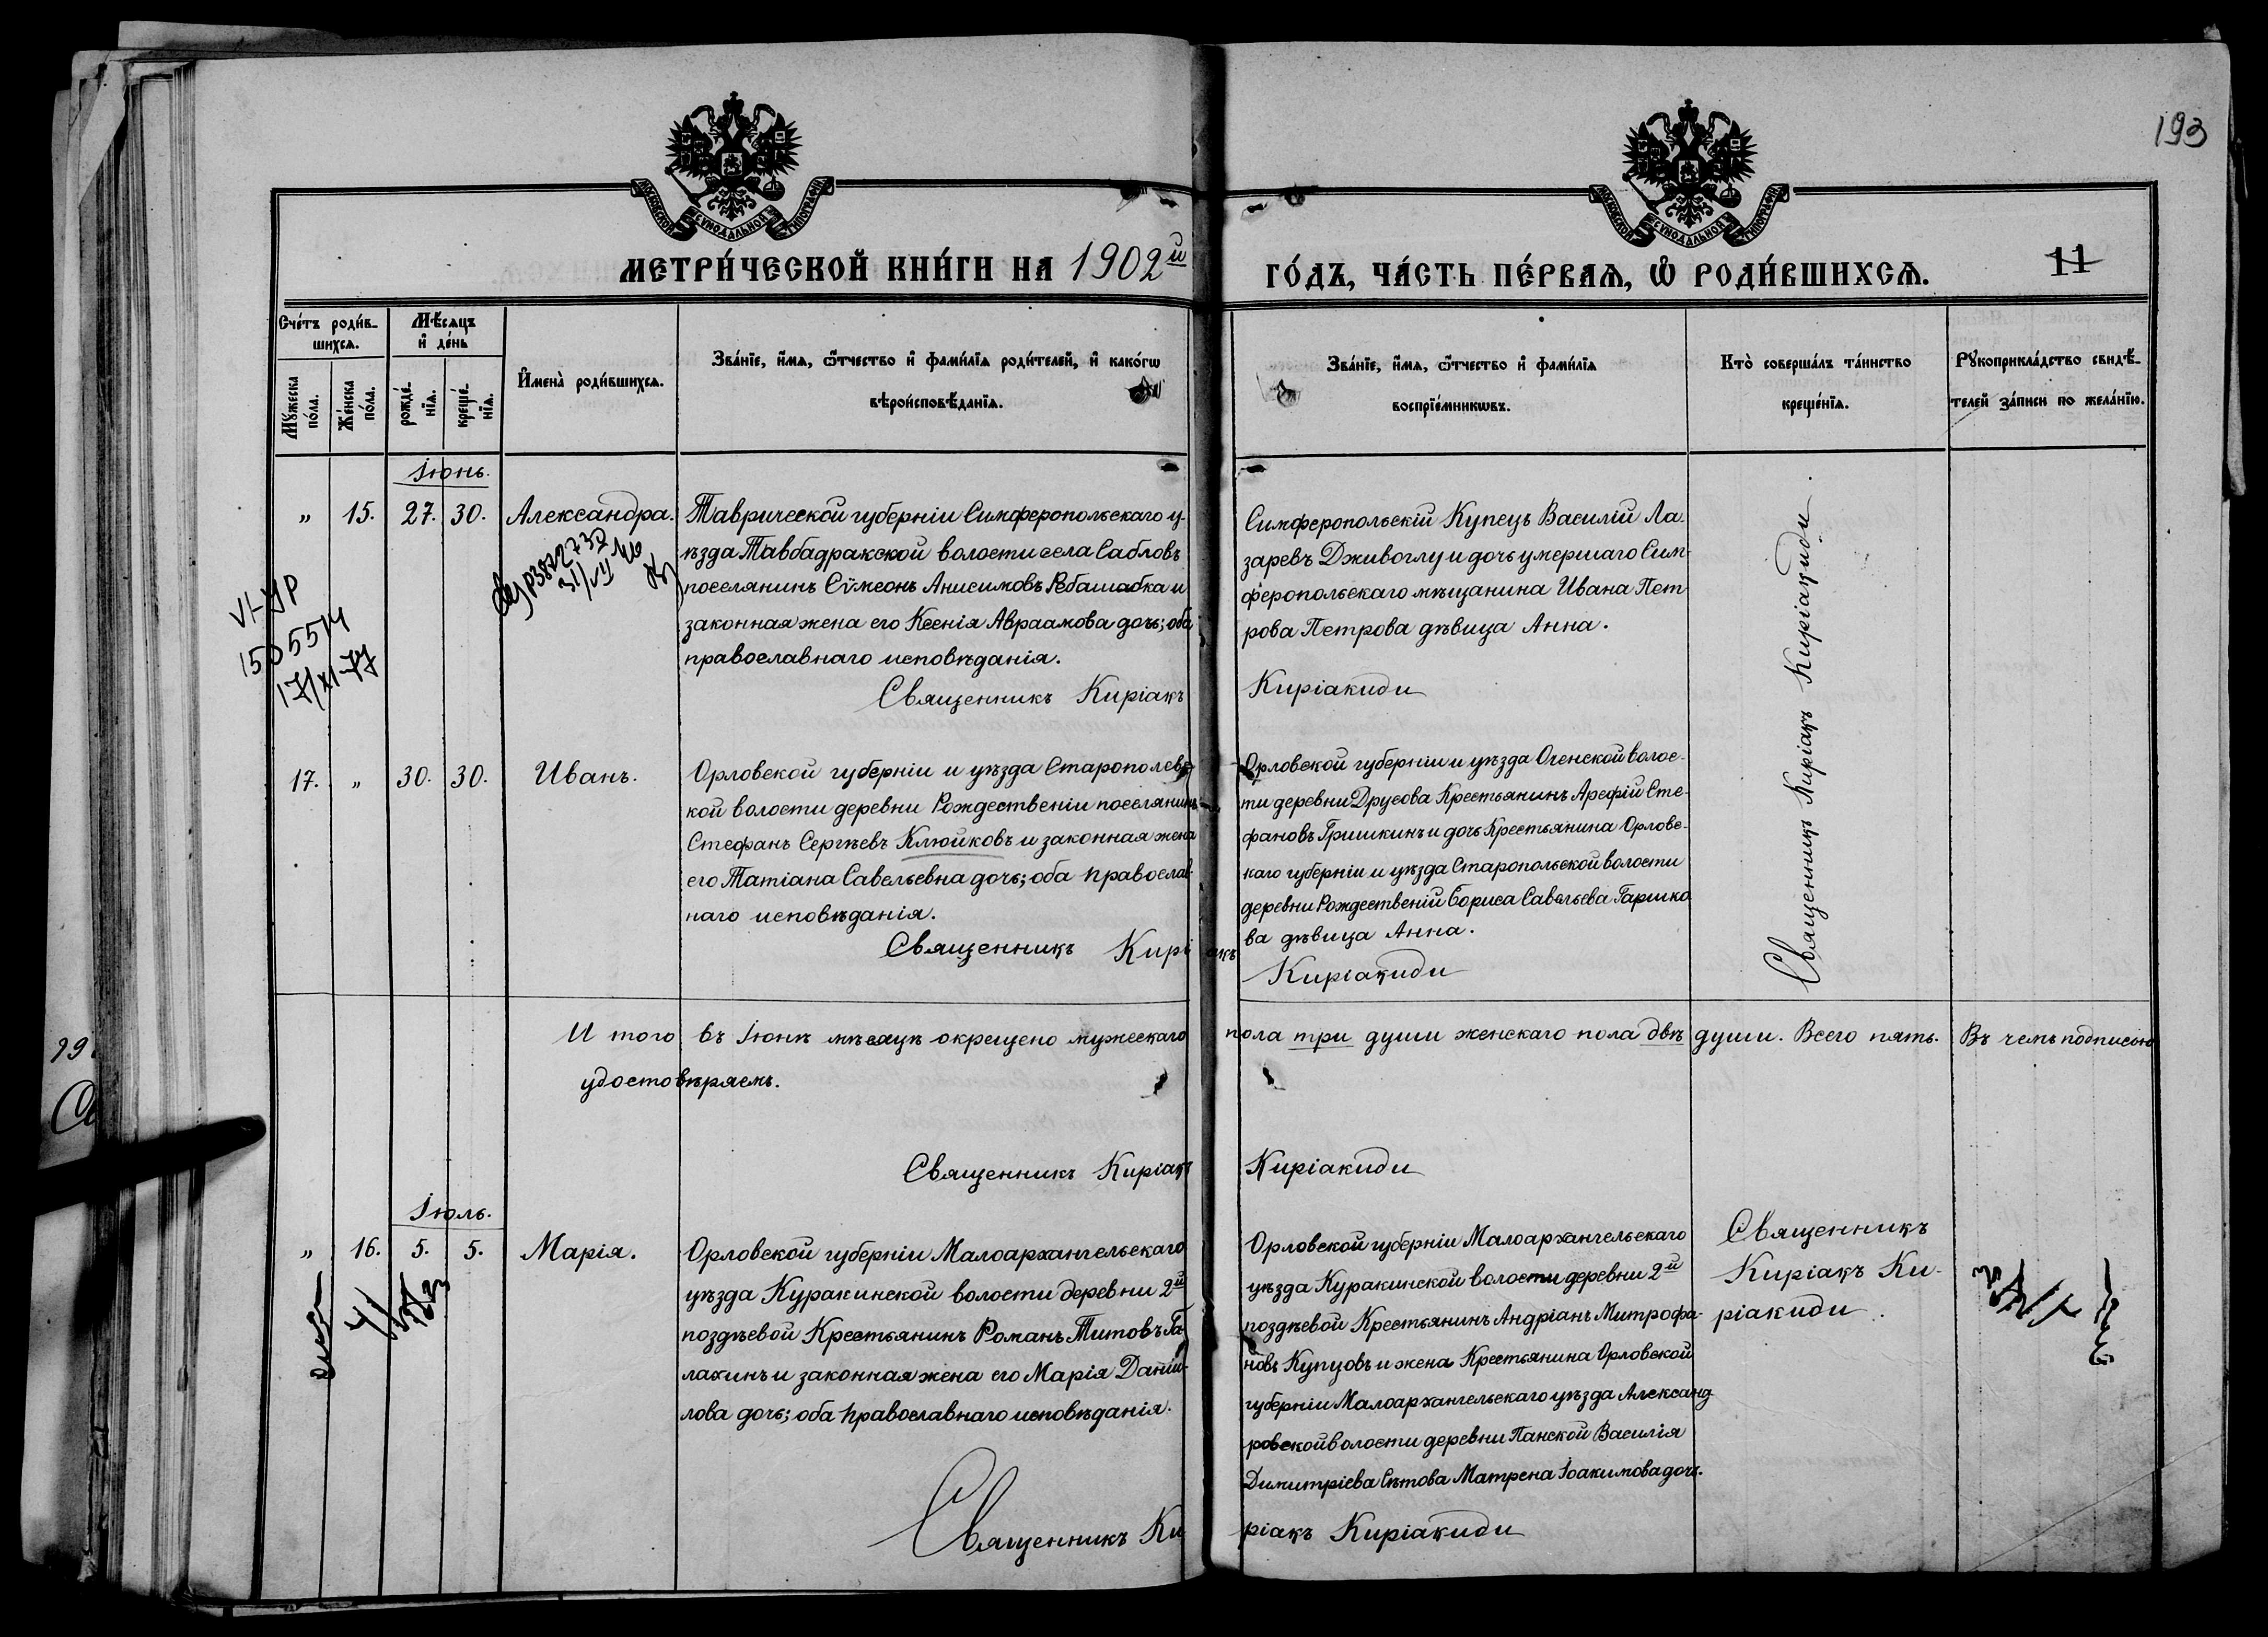 193
МОСКОВСКОЙ СѴНОДАЛЬНОЙ ТИПОГРАФІИ
МОСКОВСКОЙ СѴНОДАЛЬНОЙ ТИПОГРАФІИ
МЕТРИ́ЧЕСКОЙ КНИ́ГИ НА 1902й ГО́ДЪ, ЧА́СТЬ ПЕ́РВАѦ, Ѡ҆ РОДИ́ВШИХСѦ.
11
Счéтъ роди́в-
шихсѧ.
Мꙋ́жеска
по́ла.
Же́нска
по́ла.
Мѣ́сѧцъ
и҆ де́нь
рожде́-
нїѧ.
креще́-
нїѧ.
И҆мена̀ роди́вшихсѧ.
Зва́нїе, и҆́мѧ, ѻ҆́тчество и҆ фами́лїѧ роди́телей, и҆ како́гѡ
вѣроисповѣ́данїѧ.
Зва́нїе, и҆́мѧ, ѻ҆́тчество и҆ фами́лїѧ
воспрїе́мникѡвъ.
Кто̀ соверша́лъ та́инство
креще́нїѧ.
Рꙋкоприкла́дство свидѣ́-
телей за́писи по жела́нїю.
Іюнь.
„ 15. 27. 30. Александра.
Таврической губерніи Симферопольскаго у-
ѣзда Тавбадракской волости села Сабловъ
поселянинъ Сѵмеонъ Анисимовъ Ребашабка и
законная жена его Ксенія Авраамова дочь; оба
православнаго исповѣданія.
Священникъ Киріакъ Киріакиди
Симферопольскій Купецъ Василій Ла-
заревъ Дживоглу и дочь умершаго Сим-
феропольскаго мѣщанина Ивана Пет-
рова Петрова дѣвица Анна.
Священникъ Киріакъ Киріакиди
VI-УР
150
17/XI-77
17. „ 30. 30. Иванъ.
Орловской губерніи и уѣзда Старополевс-
кой волости деревни Рождественіи поселянинъ
Стефанъ Сергѣевъ Клюйковъ и законная жена
его Татіана Савельевна дочь; оба православ-
наго исповѣданія.
Священникъ Киріакъ
Орловской губерніи и уѣзда Огенской волос-
ти деревни Друсова Крестьянинъ Арефій Сте-
фановъ Гришкинъ и дочь Крестьянина Орловс-
каго губерніи и уѣзда Старопольской волости
деревни Рождественій Бориса Савельева Гаршко
ва дѣвица Анна.
Киріакиди
И того въ Іюнѣ мѣсяцѣ окрещено мужескаго пола три души женскаго пола двѣ души. Всего пять. Въ чемъ подписью
удостовѣряемъ.
Священникъ Киріакъ Киріакиди
Іюль.
„ 16. 5. 5. Марія.
Орловской губерніи Малоархангельскаго
уѣзда Куракинской волости деревни 2й
поздѣевой Крестьянинъ Романъ Титовъ Га-
лакинъ и законная жена его Марія Даніи-
лова дочь; оба православнаго исповѣданія.
Орловской губерніи Малоархангельскаго
уѣзда Куракинской волости деревни 2й
поздѣевой Крестьянинъ Андріанъ Митрофа-
новъ Купцовъ и жена Крестьянина Орловской
губерніи Малоархангельскаго уѣзда Александ
ровской волости деревни Панской Василія
Димитріева Сѣтова Матрена Іоакимова дочь.
Священникъ
Киріакъ Ки-
ріакиди.
Священникъ Киріакъ Киріакиди